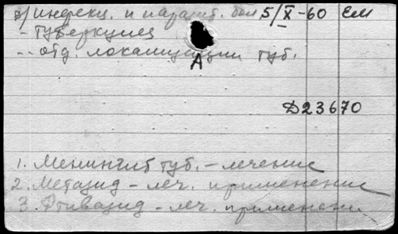 в) инфекц. и паразит. бол 5/X-60 Ем
- туберкулез
-- отд. локализации туб.
А
Д23670
1. Менингит туб. - лечение
2. Метазид - леч. применение
3. Фтивазид - леч. применени